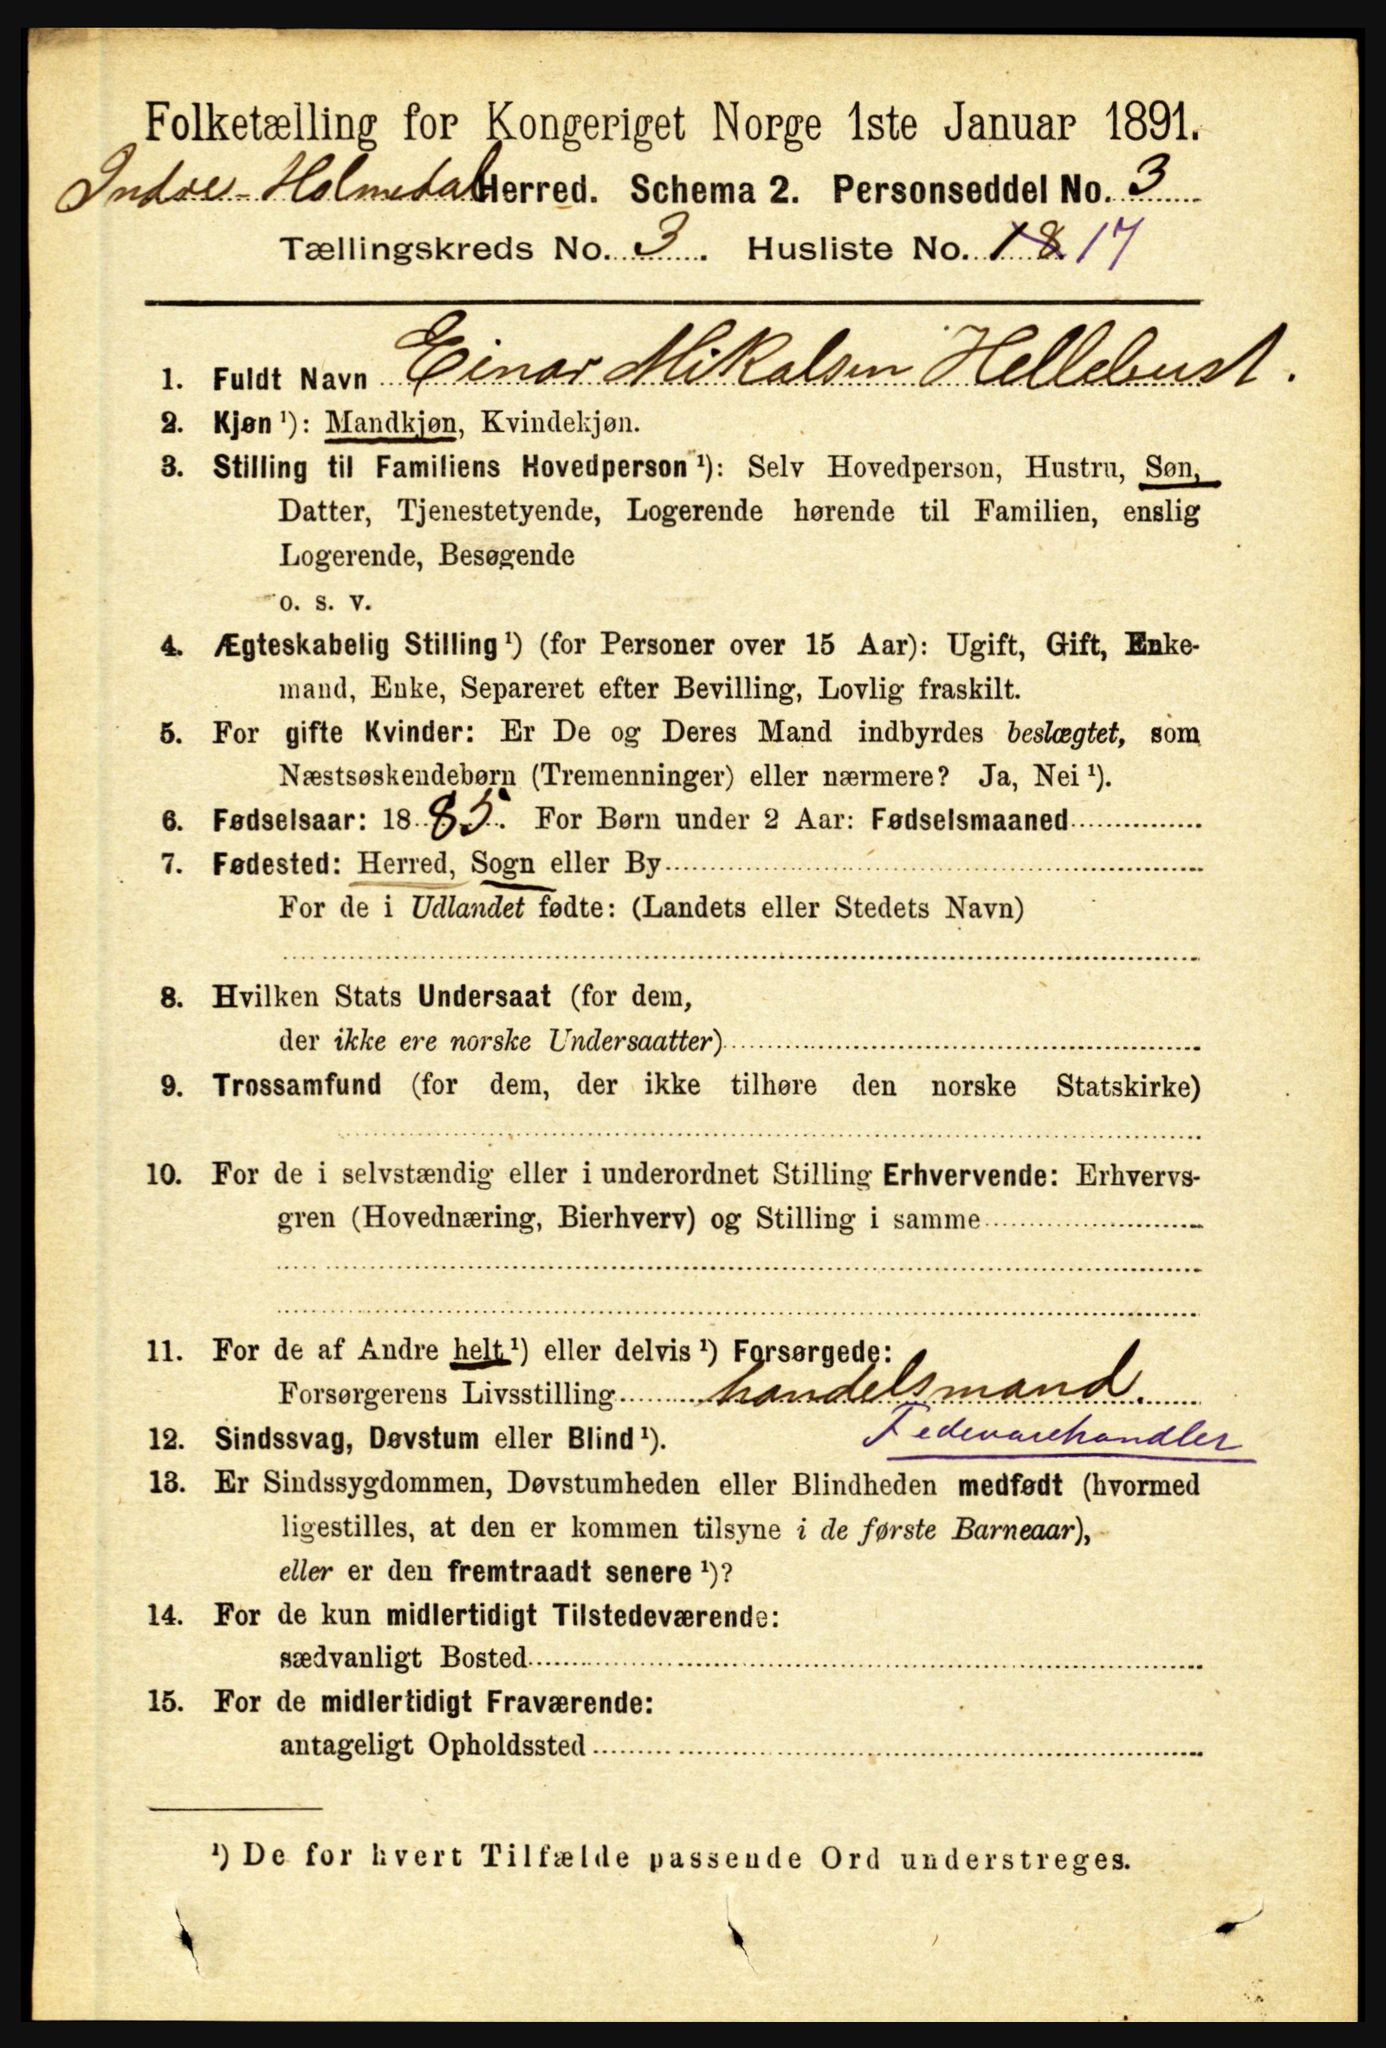 Folketælling for Kongeriget Norge 1ste Januar 1891.
Indre-Holmedal Herred. Schema 2. Personseddel No. 3
Tællingskreds No. 3. Husliste No. 18 17
1. Fuldt Navn Einar Mikalsen Hellebust.
2. Kjøn ¹): Mandkjøn, Kvindekjøn.
3. Stilling til Familiens Hovedperson ¹): Selv Hovedperson, Hustru, Søn,
Datter, Tjenestetyende, Logerende hørende til Familien, enslig
Logerende, Besøgende
o. s. v.
4. Ægteskabelig Stilling ¹) (for Personer over 15 Aar): Ugift, Gift, Enke-
mand, Enke, Separeret efter Bevilling, Lovlig fraskilt.
5. For gifte Kvinder: Er De og Deres Mand indbyrdes beslægtet, som
Næstsøskendebørn (Tremenninger) eller nærmere? Ja, Nei ¹).
6. Fødselsaar: 1885. For Børn under 2 Aar: Fødselsmaaned
7. Fødested: Herred, Sogn eller By
For de i Udlandet fødte: (Landets eller Stedets Navn)
8. Hvilken Stats Undersaat (for dem,
der ikke ere norske Undersaatter)
9. Trossamfund (for dem, der ikke tilhøre den norske Statskirke)
10. For de i selvstændig eller i underordnet Stilling Erhvervende: Erhvervs-
gren (Hovednæring, Bierhverv) og Stilling i samme
11. For de af Andre helt ¹) eller delvis ¹) Forsørgede:
Forsørgerens Livsstilling handelsmand.
12. Sindssvag, Døvstum eller Blind ¹). Fedevarehandler
13. Er Sindssygdommen, Døvstumheden eller Blindheden medfødt (hvormed
ligestilles, at den er kommen tilsyne i de første Barneaar),
eller er den fremtraadt senere ¹)?
14. For de kun midlertidigt Tilstedeværende:
sædvanligt Bosted
15. For de midlertidigt Fraværende:
antageligt Opholdssted
¹) De for hvert Tilfælde passende Ord understreges.